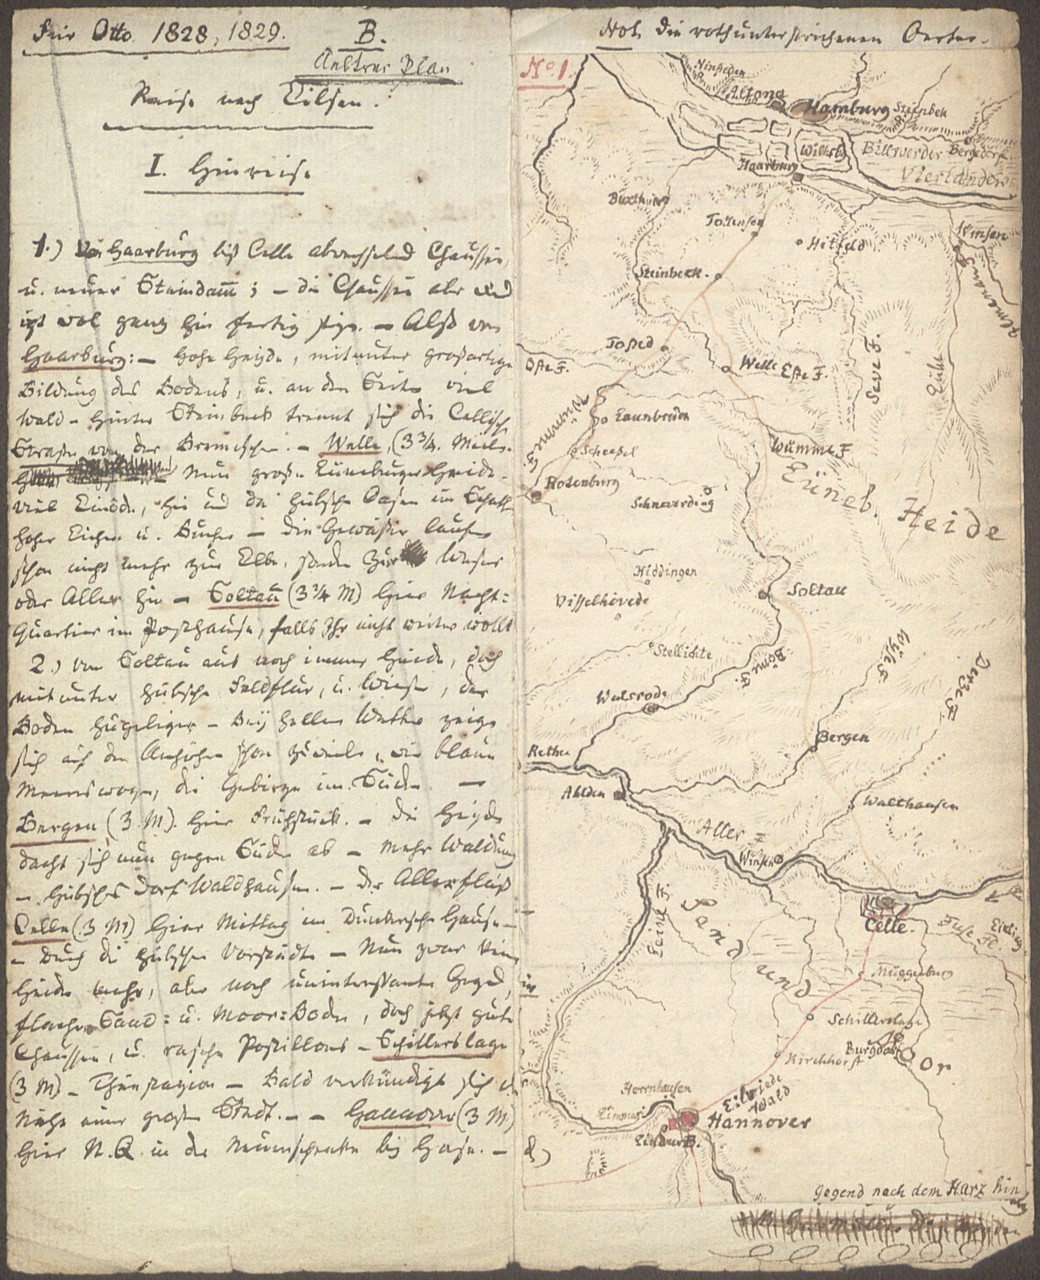 Für Otto 1828, 1829.
B.
Aeltrer Plan
Reise nach Eilsen.
I. Hinreise
1.) Von Haarburg bis Celle abwechselnd Chaussee,
u. neuer Steindam̅; – die Chaussee aber wird
itzt wol ganz hin fertig seyn. – Also von
Haarburg: – hohe Heyde, mitunter großartige
Bildung des Bodens, u. an den Seiten viel
Wald – hinter Steinbeck trennt sich die Cellische
Strasse von der Bremischen. – Welle, (3¾. Meile.
Nun große Lüneburger Heide.
viel Einöde, hin und da hübsche Oasen im Schatt
hoher Eichen u. Buchen – die Gewässer laufen
schon nicht mehr zur Elbe, sondern zur Weser
oder Aller hin – Soltau (3¾ M) hier Nacht=
Quartier im Posthause, falls Ihr nicht weiter wollt
2.) von Soltau aus noch immer Heide, doch
mitunter hübsche Feldflur, u. Wiese, der
Boden hügeliger – Bey hellem Wetter zeigen
sich auf den Anhöhen schon zuweilen, wie blaue
Meereswogen, die Gebirge im Süden. –
Bergen (3. M). hier Frühstück. – die Heyde
dacht sich nun gegen Süden ab – mehr Waldung
– hübsches Dorf Waldhausen. – der Allerfluß
Celle (3 M) hier Mittag im Hause –
– Durch die hübschen Vorstädte – Nun zwar keine
Heide mehr, aber noch uninteressante Gegend,
flacher Sand= u. Moor=Boden, doch jetzt gute
Chaussee, u. rasche Postillons – Schillerslage
(3 M) – – Bald verkündigt sich die
Nähe einer großen Stadt. – – Hannover (3 M)
hier N.Q. in der bey Hasen. –
Not. die roth unterstrichenen Oerter.
No 1.
Ninsteden
Altona
Hamburg
Steinbek
Willhb
Billwerder
Bergedorf
Haarburg
Vierlanden
Buxthude
Tottensen
Hitfeld
Winsen
Steinbeck.
Ilmenau F.
Tosted
Oste F.
Welle
Este F.
Seve F.
Luhe
Wümme F.
Launbrück
Scheeßel
Wümme F
Rotenburg
Schneverding
Lüneb. Heide
Hiddingen
Visselhövede
Soltau
Stellichte
Böme F.
Wiße F.
Oerze F.
Walsrode
Bergen
Rethe
Ahlden
Walthausen
Aller F
Winsen
Leine F.
Celle.
Fuse Fl.
Eicling
Sand und
Müggenburg
Schillerslage
Burgdorf
Kirchhorst
Or
Herrnhausen
Eilriede Wald
Limmer
Hannover
Linduer B.
Gegend nach dem Harz hin